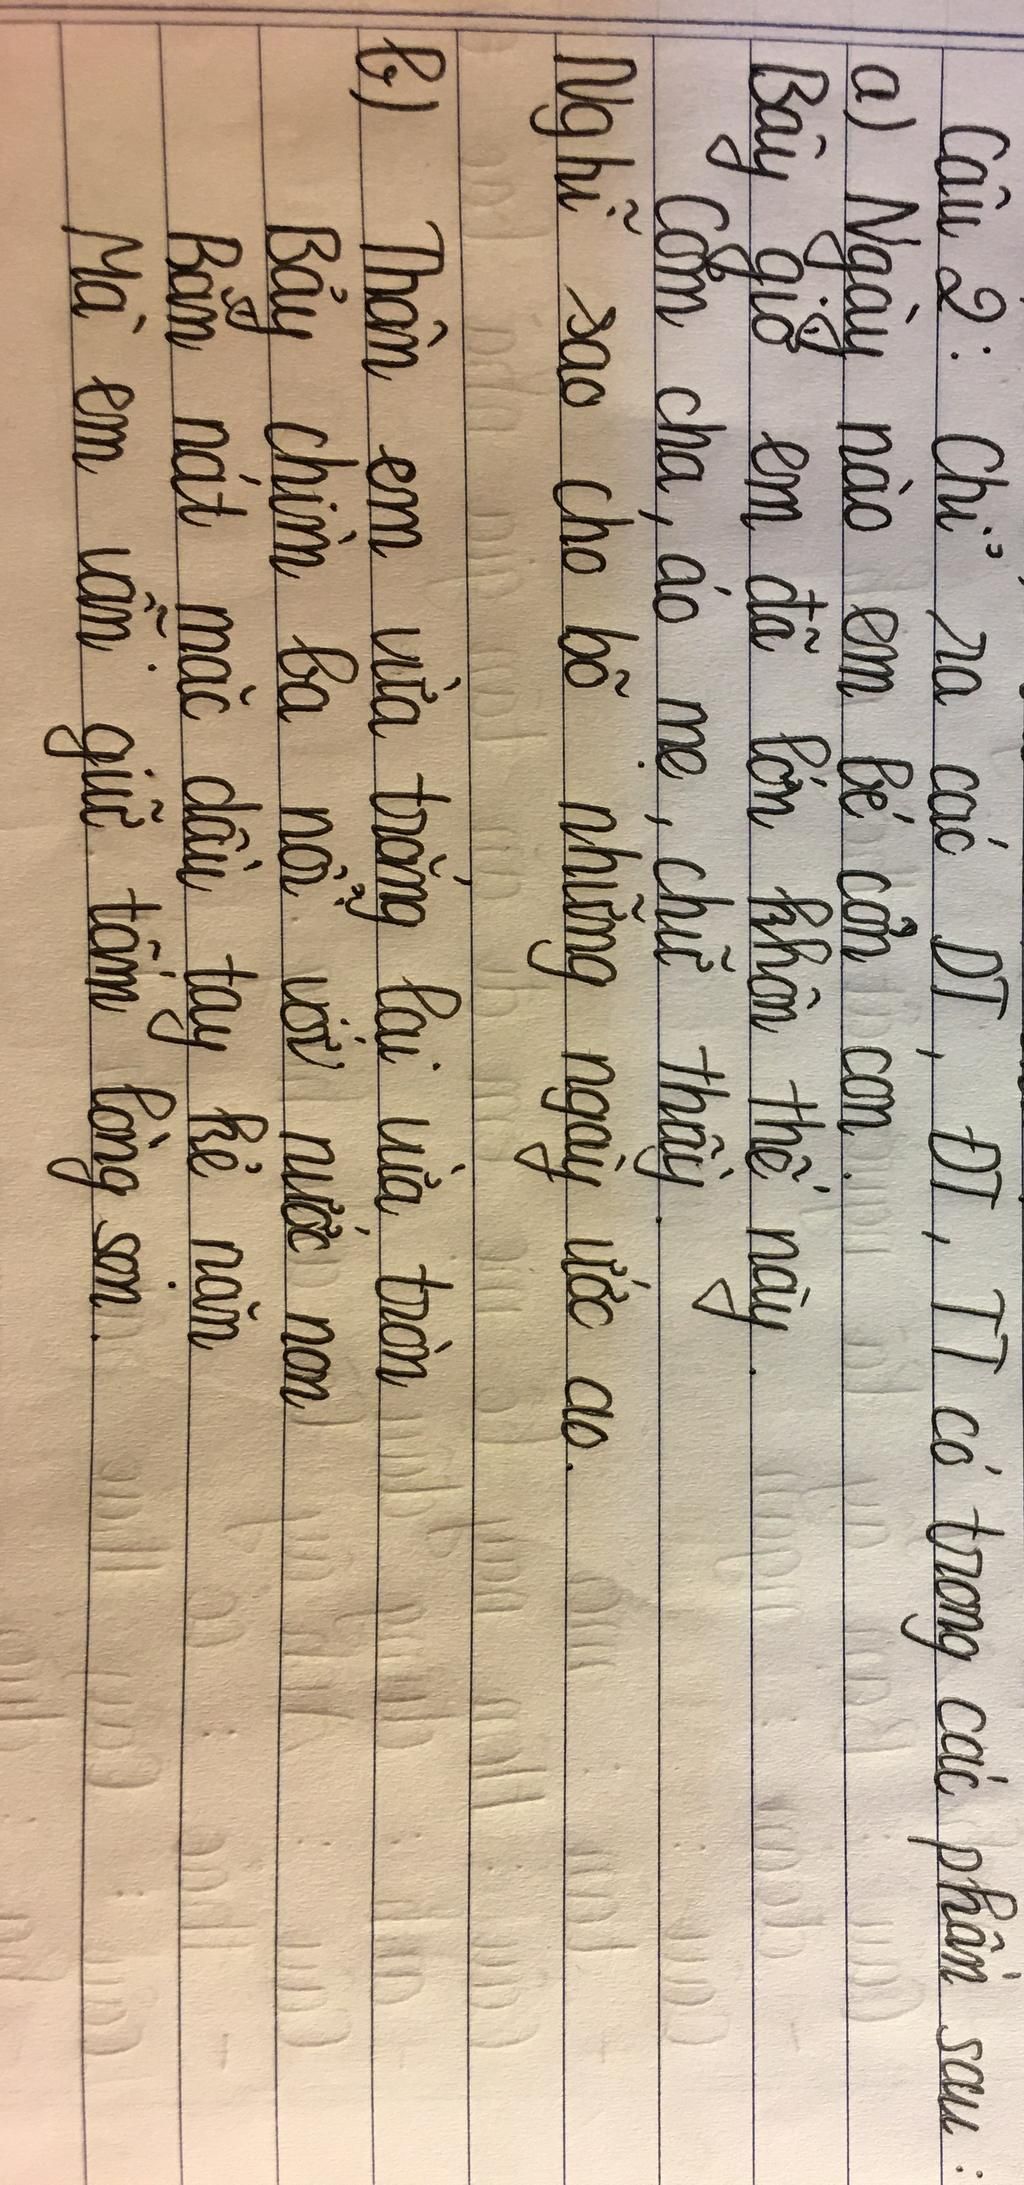 Câu 2: Chỉ ra các DT, ĐT, TT có trong các phần sau:
a) Ngày nào em bé cỏn con.
Bây giờ em đã lớn khôn thế này.
Cơm cha, áo mẹ, chữ thầy.
Nghĩ sao cho bõ những ngày ước ao.
b) Thân em vừa trắng lại vừa tròn
Bảy chìm ba nổi với nước non
Bẩn nát mặc dầu tay kẻ nặn
Mà em vẫn giữ tấm lòng son.